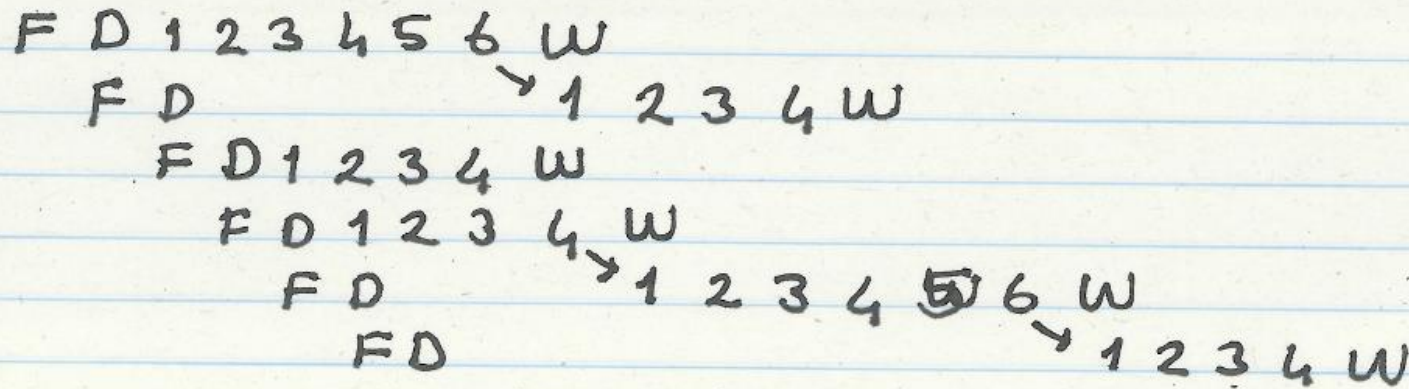 F D 1 2 3 4 5 6 W
F D 1 2 3 4 W
F D 1 2 3 4 W
F D 1 2 3 4 W
F D 1 2 3 4 5 6 W
F D 1 2 3 4 W